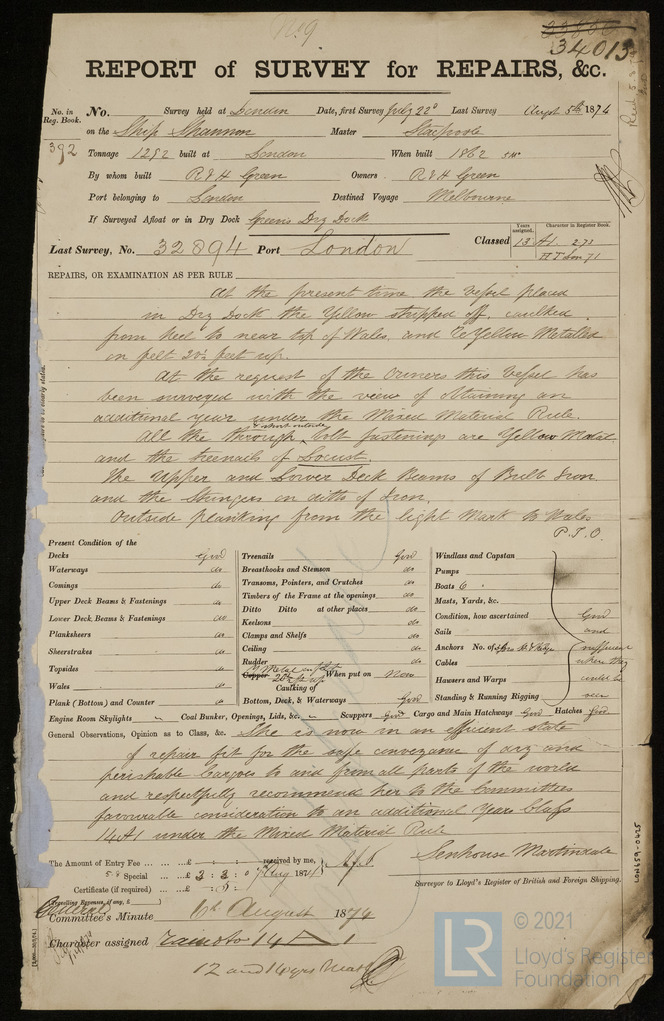 No 9
34013
REPORT of SURVEY for REPAIRS, &c.
No. in Reg. Book.
No. Survey held at London Date, first Survey July 22d Last Survey Augt 5th 1874
on the Ship Shannon Master
392
Tonnage 1292 built at London When built 1862
By whom built R & H Green Owners R & H Green
Port belonging to London Destined Voyage Melbourne
If Surveyed Afloat or in Dry Dock Green's Dry Dock
Last Survey, No. 32894 Port London Classed
Years assigned. Character in Register Book.
13 A1. 2,73
71
REPAIRS, OR EXAMINATION AS PER RULE
At the present time the Vessel placed
in Dry Dock the Yellow stripped off, caulked
from keel to near top of Wales, and Yellow Metalled
on felt feet up.
At the request of the Owners this Vessel has
been surveyed with the view of obtaining an
additional year under the Mixed Material Rule.
& short outside
All the through bolt fastenings are Yellow Metal
and the treenails of Locust.
The Upper and Lower Deck Beams of Bulb Iron
and the Stringers on ditto of Iron.
Outside planking from the light Mark to Wales
P.T.O.
Present Condition of the
Decks Good
Waterways do
Comings do
Upper Deck Beams & Fastenings do
Lower Deck Beams & Fastenings do
Planksheers do
Sheerstrakes do
Topsides do
Wales do
Plank (Bottom) and Counter do
Treenails Good
Breasthooks and Stemson do
Transoms, Pointers, and Crutches do
Timbers of the Frame at the openings do
Ditto Ditto at other places do
Keelsons do
Clamps and Shelfs do
Ceiling do
Rudder do
Y Metal on felt
Copper When put on Now
Caulking of
Bottom, Deck, & Waterways Good
Windlass and Capstan
Pumps
Boats 6
Masts, Yards, &c.
Condition, how ascertained
Sails
Anchors No. of
Cables
Hawsers and Warps
Standing & Running Rigging
Good
and
sufficient
when they
could be
seen
Engine Room Skylights " Coal Bunker, Openings, Lids, &c. " Scuppers Good Cargo and Main Hatchways Good Hatches Good
General Observations, Opinion as to Class, &c. She is now in an efficient state
of repair fit for the safe conveyance of dry and
perishable Cargoes to and from all parts of the world
and respectfully recommend her to the Committees
favourable consideration to an additional Years Class
14 A1 under the Mixed Material Rule
The Amount of Entry Fee ... ... £ : : received by me,
Special ... £ 3 : 3 : 0 Aug 1874
Certificate (if required) ... £
(Travelling Expenses, if any, £ )
Senhouse Martindale
Surveyor to Lloyd's Register of British and Foreign Shipping.
Committee's Minute 6th August 1874
Character assigned 14 A 1
12 and
LON659-0425
© 2021
LR
Lloyd's Register
Foundation